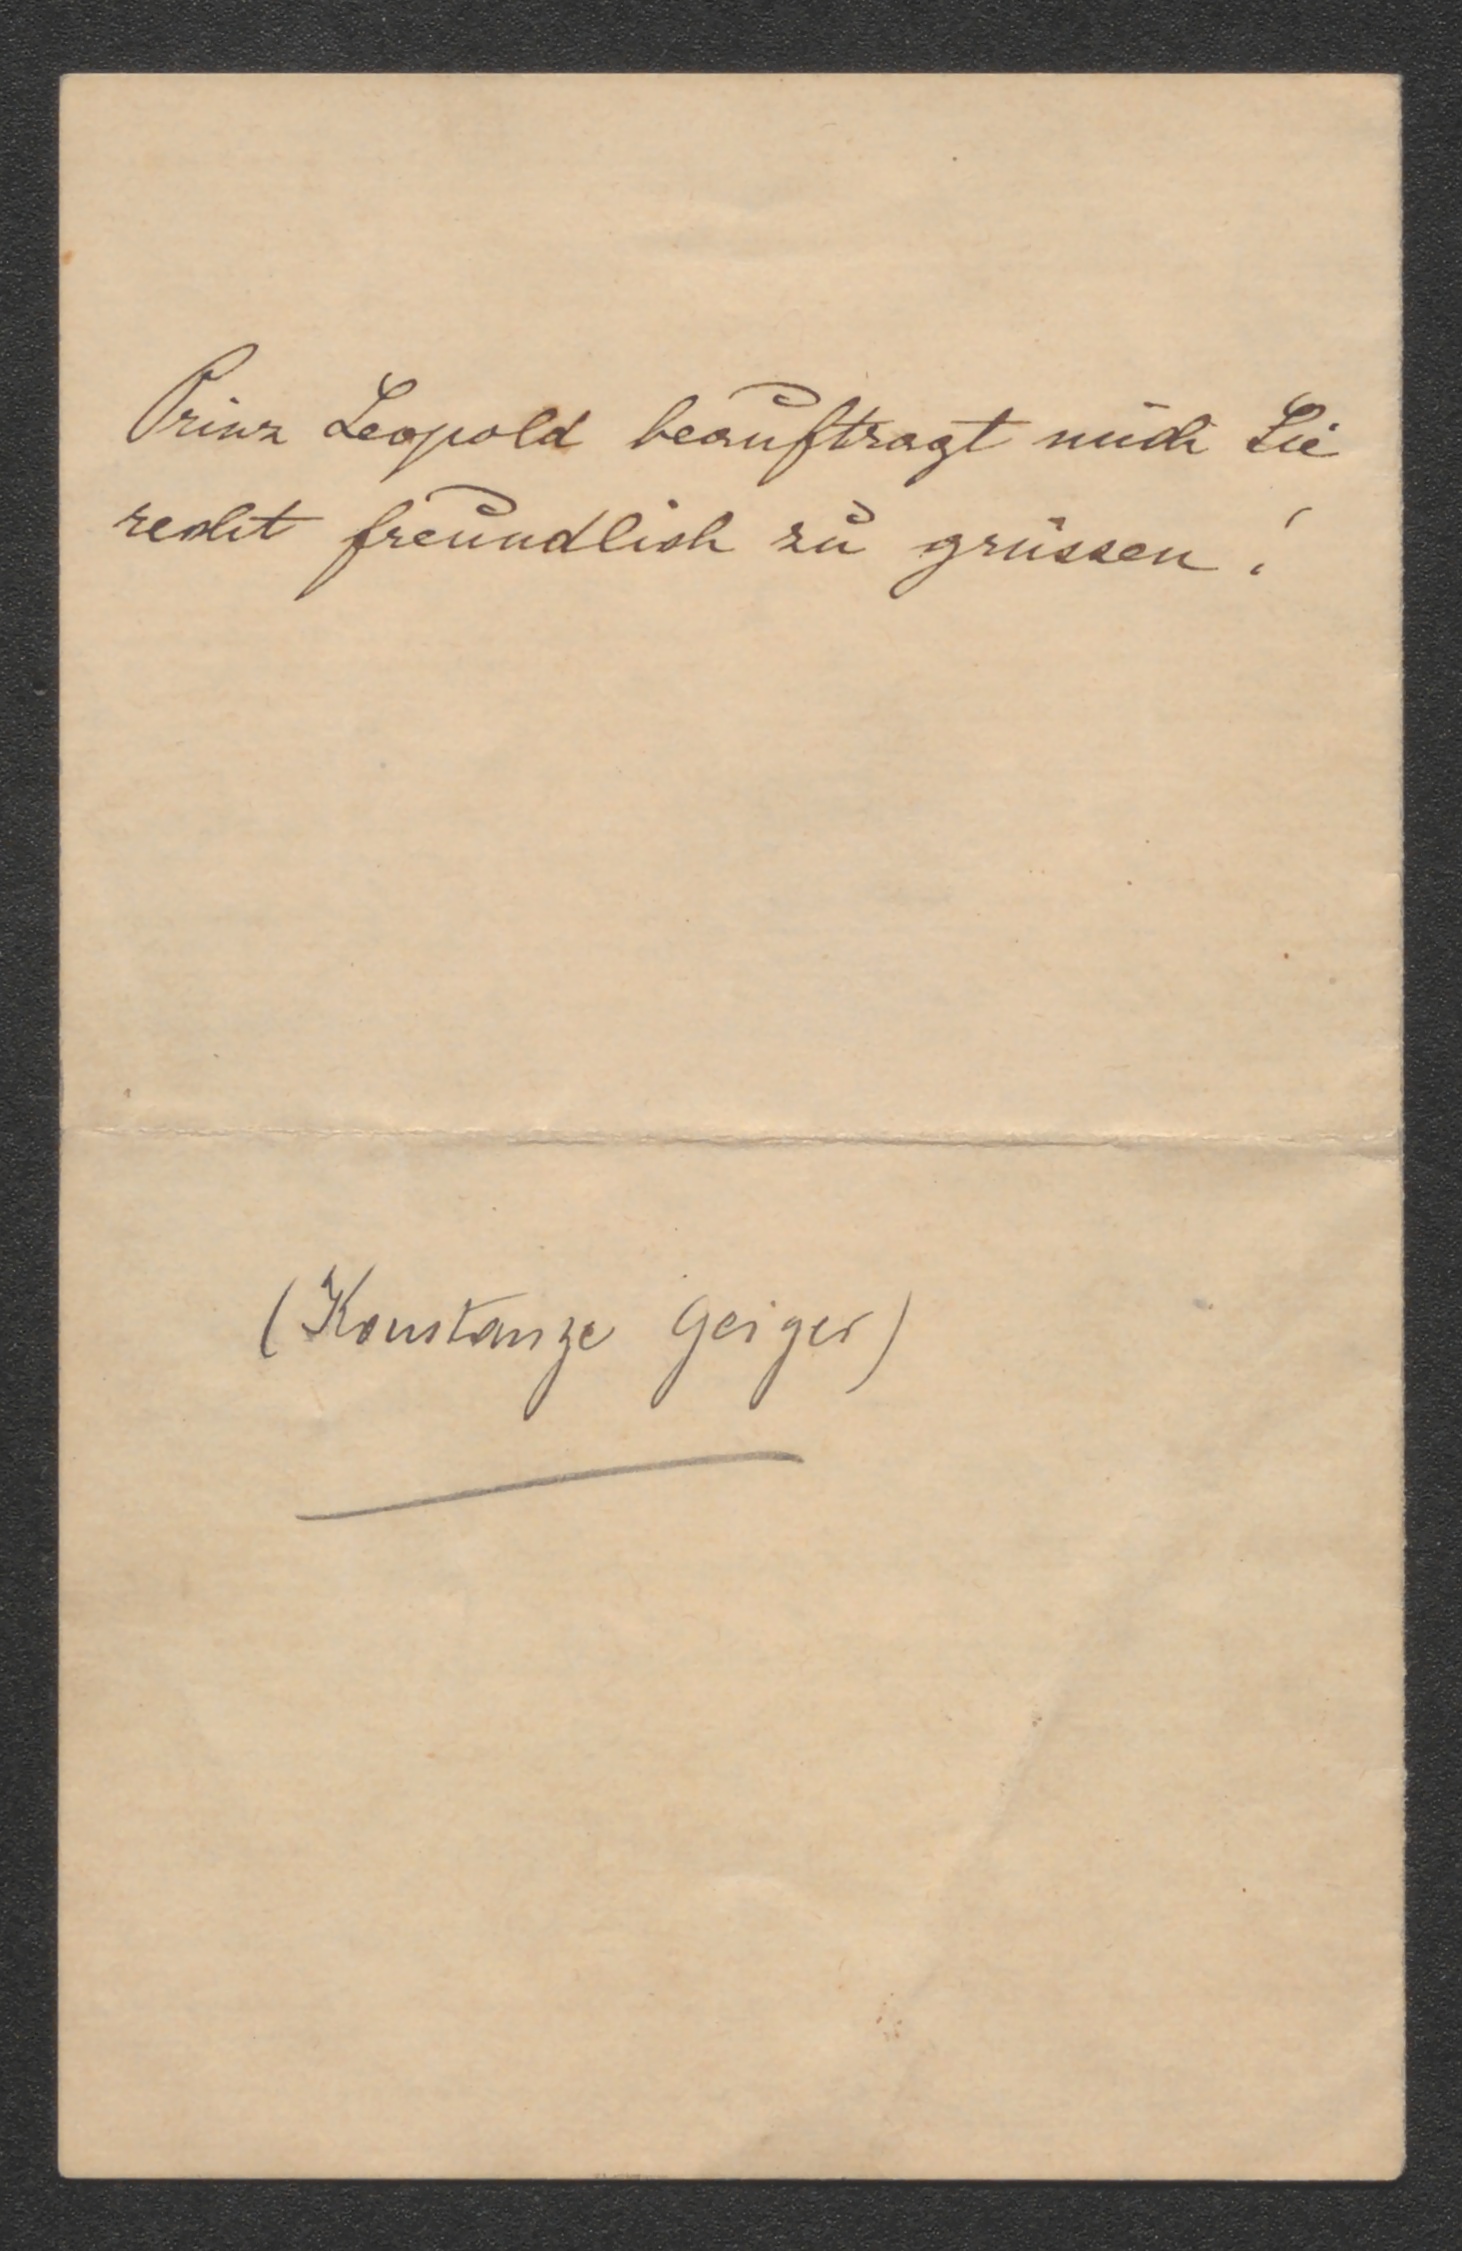 Prinz Leopold beauftragt mich Sie
recht freundlich zu grüssen!
(Konstanze Geiger)